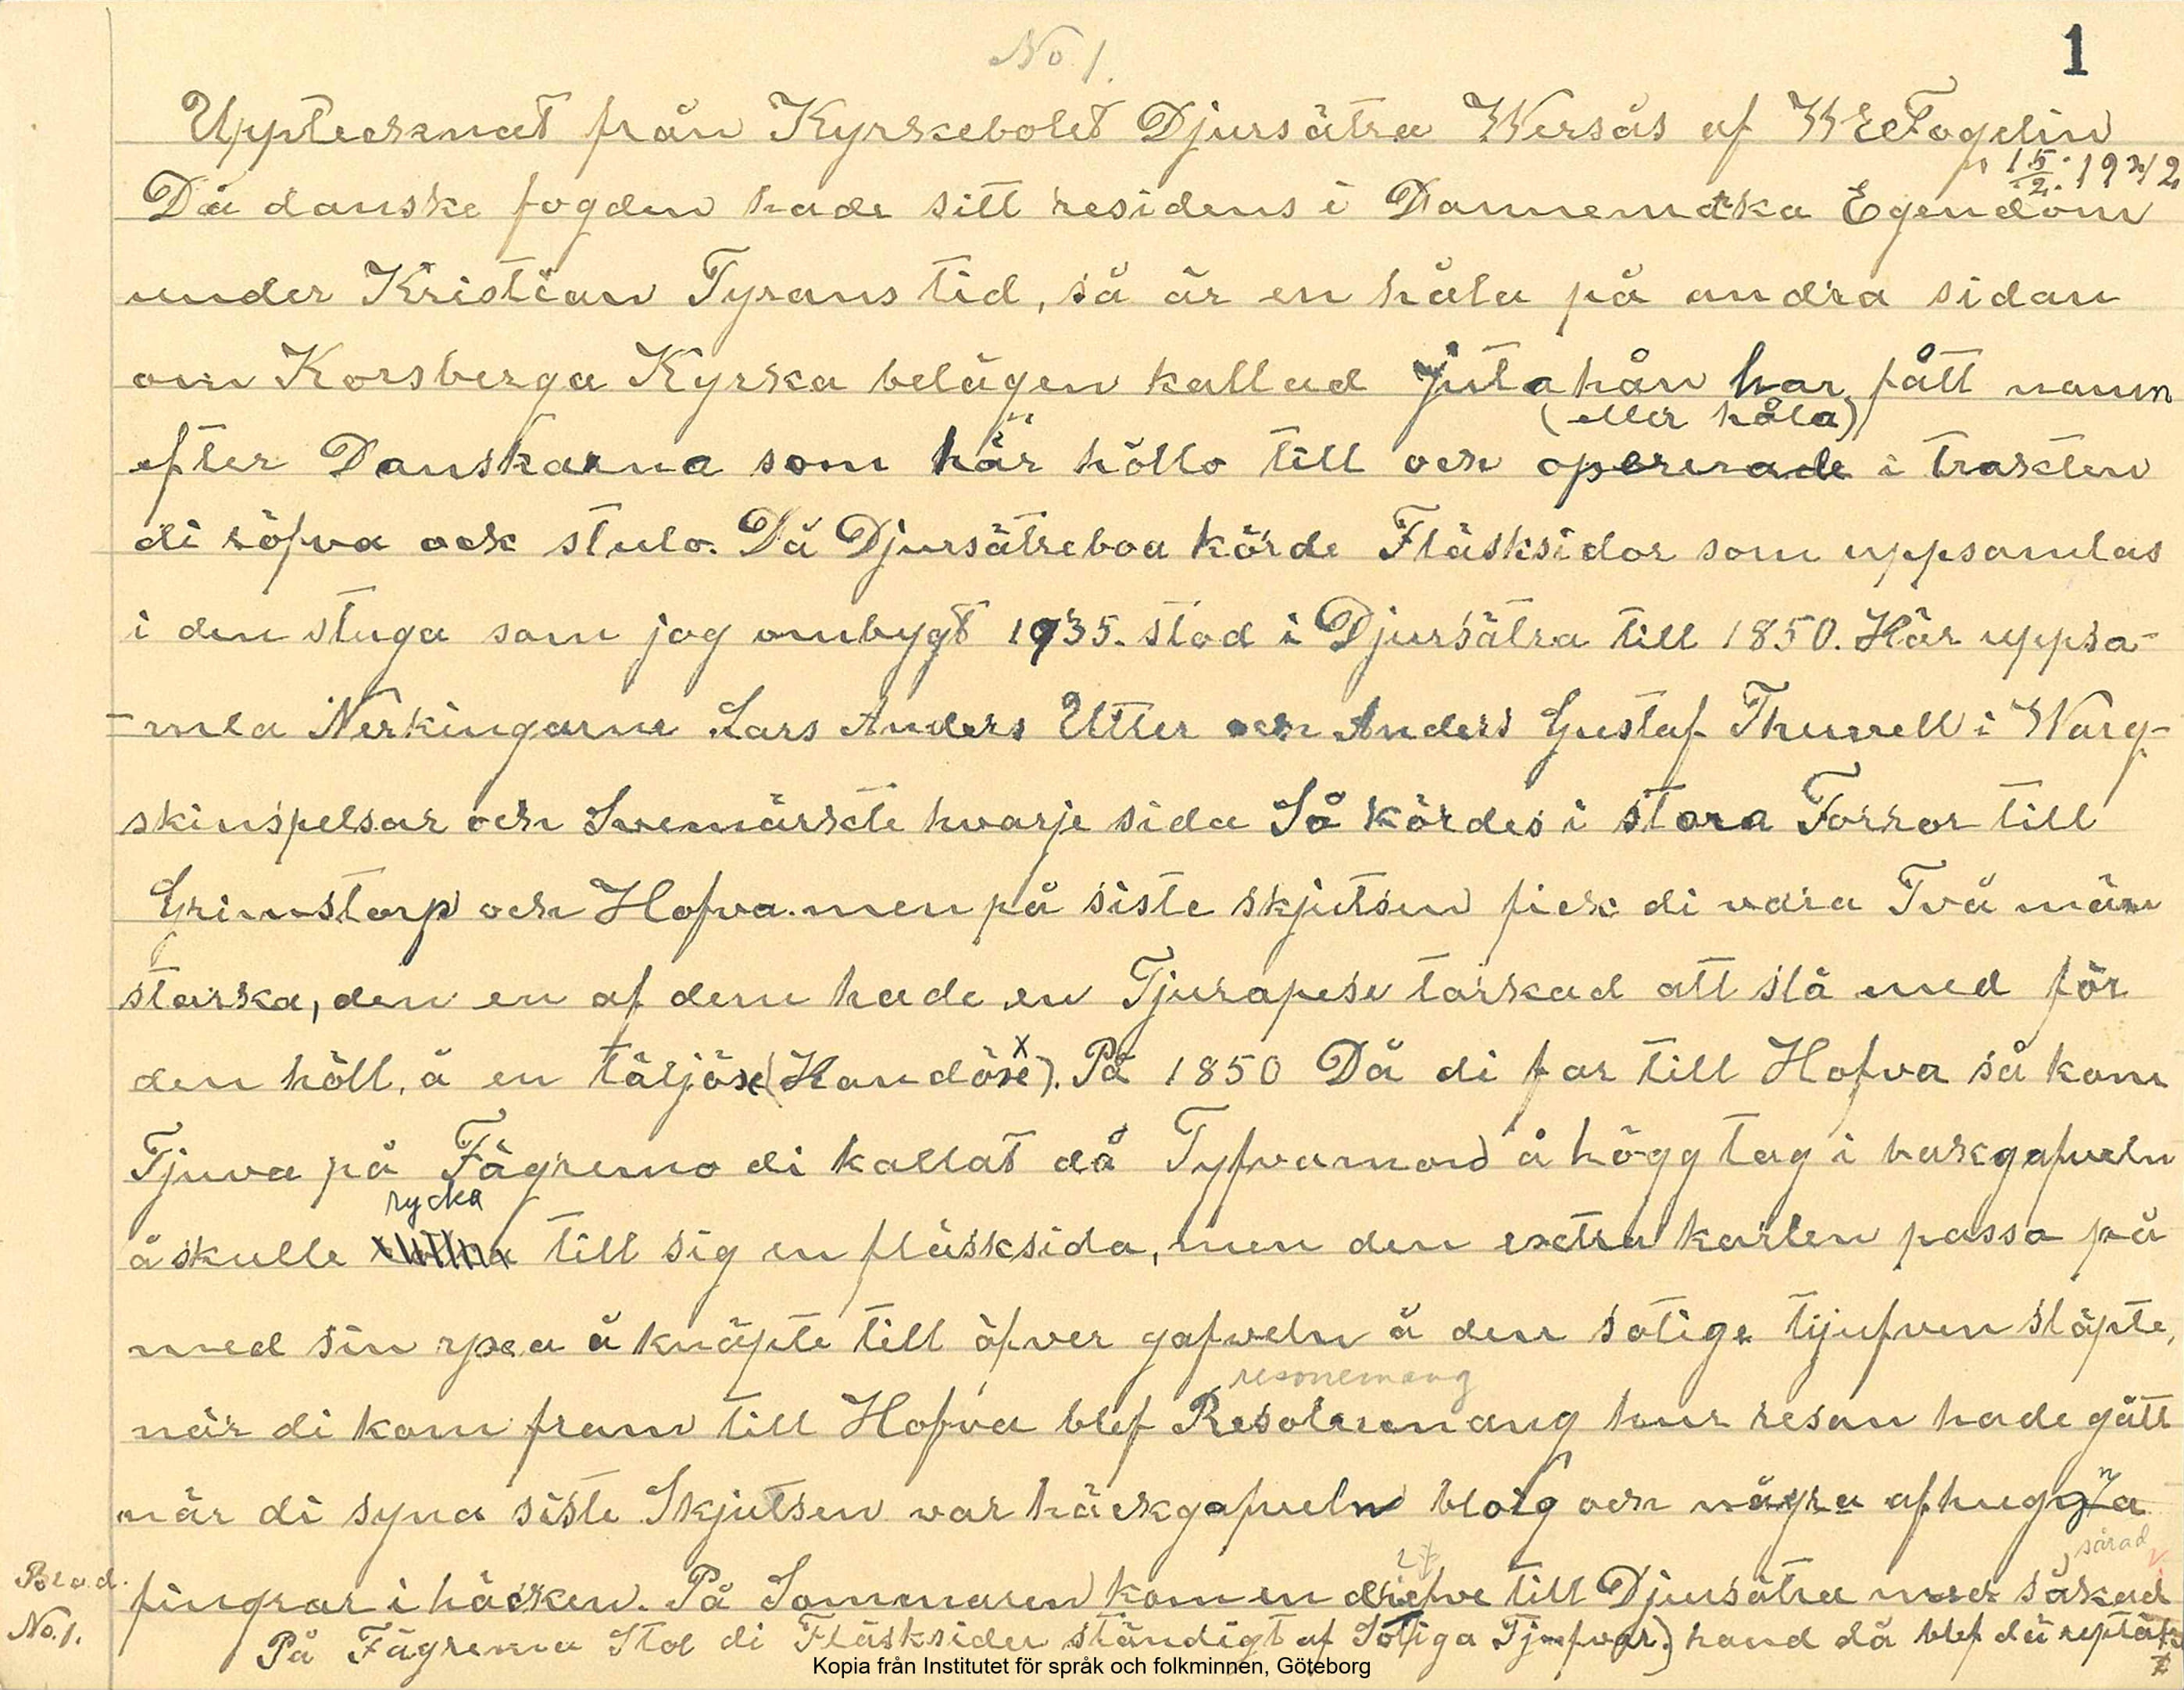 No 1.
1
Upptecknat från Kyrkebolet Djursätra Wersås af W E Fogelin
15/2. 1942
Då danske fogden hade sitt residens i Dannemarka Egendom
under Kristian Tyrans tid, så är en håla på andra sidan
om Korsberga Kyrka belägen kallad jutahån har fått namn
(eller håla)
efter Danskarna som här höllo till och opererade i trakten
di röfva ock stulo. Då Djursätreboa körde Fläsksidor som uppsamlas
i den stuga som jag ombygt 1935. stod i Djursätra till 1850. Här uppsa-
-mla Nerkingarne Lars Anders Utter och Anders Gustaf Thurell i Warg-
skinspelsar och Svemärkte hvarje sida Så kördes i stora Forror till
Grimstorp och Hofva. men på siste skjutsen fick di vara Två män
starka, den en af dem hade en Tjurapese torkad att slå med för
den höll, å en täljöxe (Handöxe x). På 1850 Då di far till Hofva så kom
Tjuva på Fägremo di kallat då Tyfvamon å högg tag i bakgafveln
rycka
å skulle till sig en fläsksida, men den extra karlen passa på
med sin yxa å knäpte till öfver gafveln å den sotige tjufven släpte,
resonemang
när di kom fram till Hofva blef Resolremang hur resan hade gått
när di syna siste Skjutsen var häckgafveln bloig och några afhuggna
sårad
fingrar i häcken. På Sommaren kom en till Djursätra med såkad
Blad.
No. 1.
På Fägremo Stal di Fläsksider ständigt af Sotiga Tjufvar.) hand då blef di
Kopia från Institutet för språk och folkminnen, Göteborg